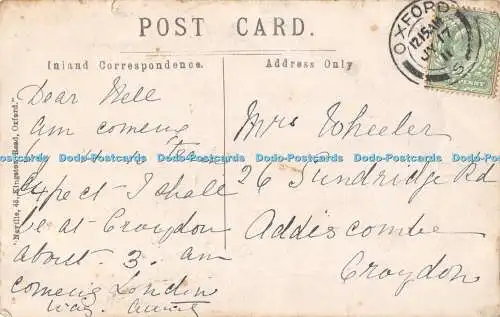 POST CARD.
Inland Correspondence.
Address Only
OXFORD
12.15 AM
JY 17
11
S
PENNY
Dear Nell
am coming
to Tea
expect I shall
be at Croydon
about. 3. am
coming London
way. Aunt
Mrs Wheeler
26 Sundridge Rd
Addiscombe
Croydon
"Neville, 45, Kingston Road, Oxford."
Dado-Postcards Dado-Postcards Dado-Postcards Dado-Postcards